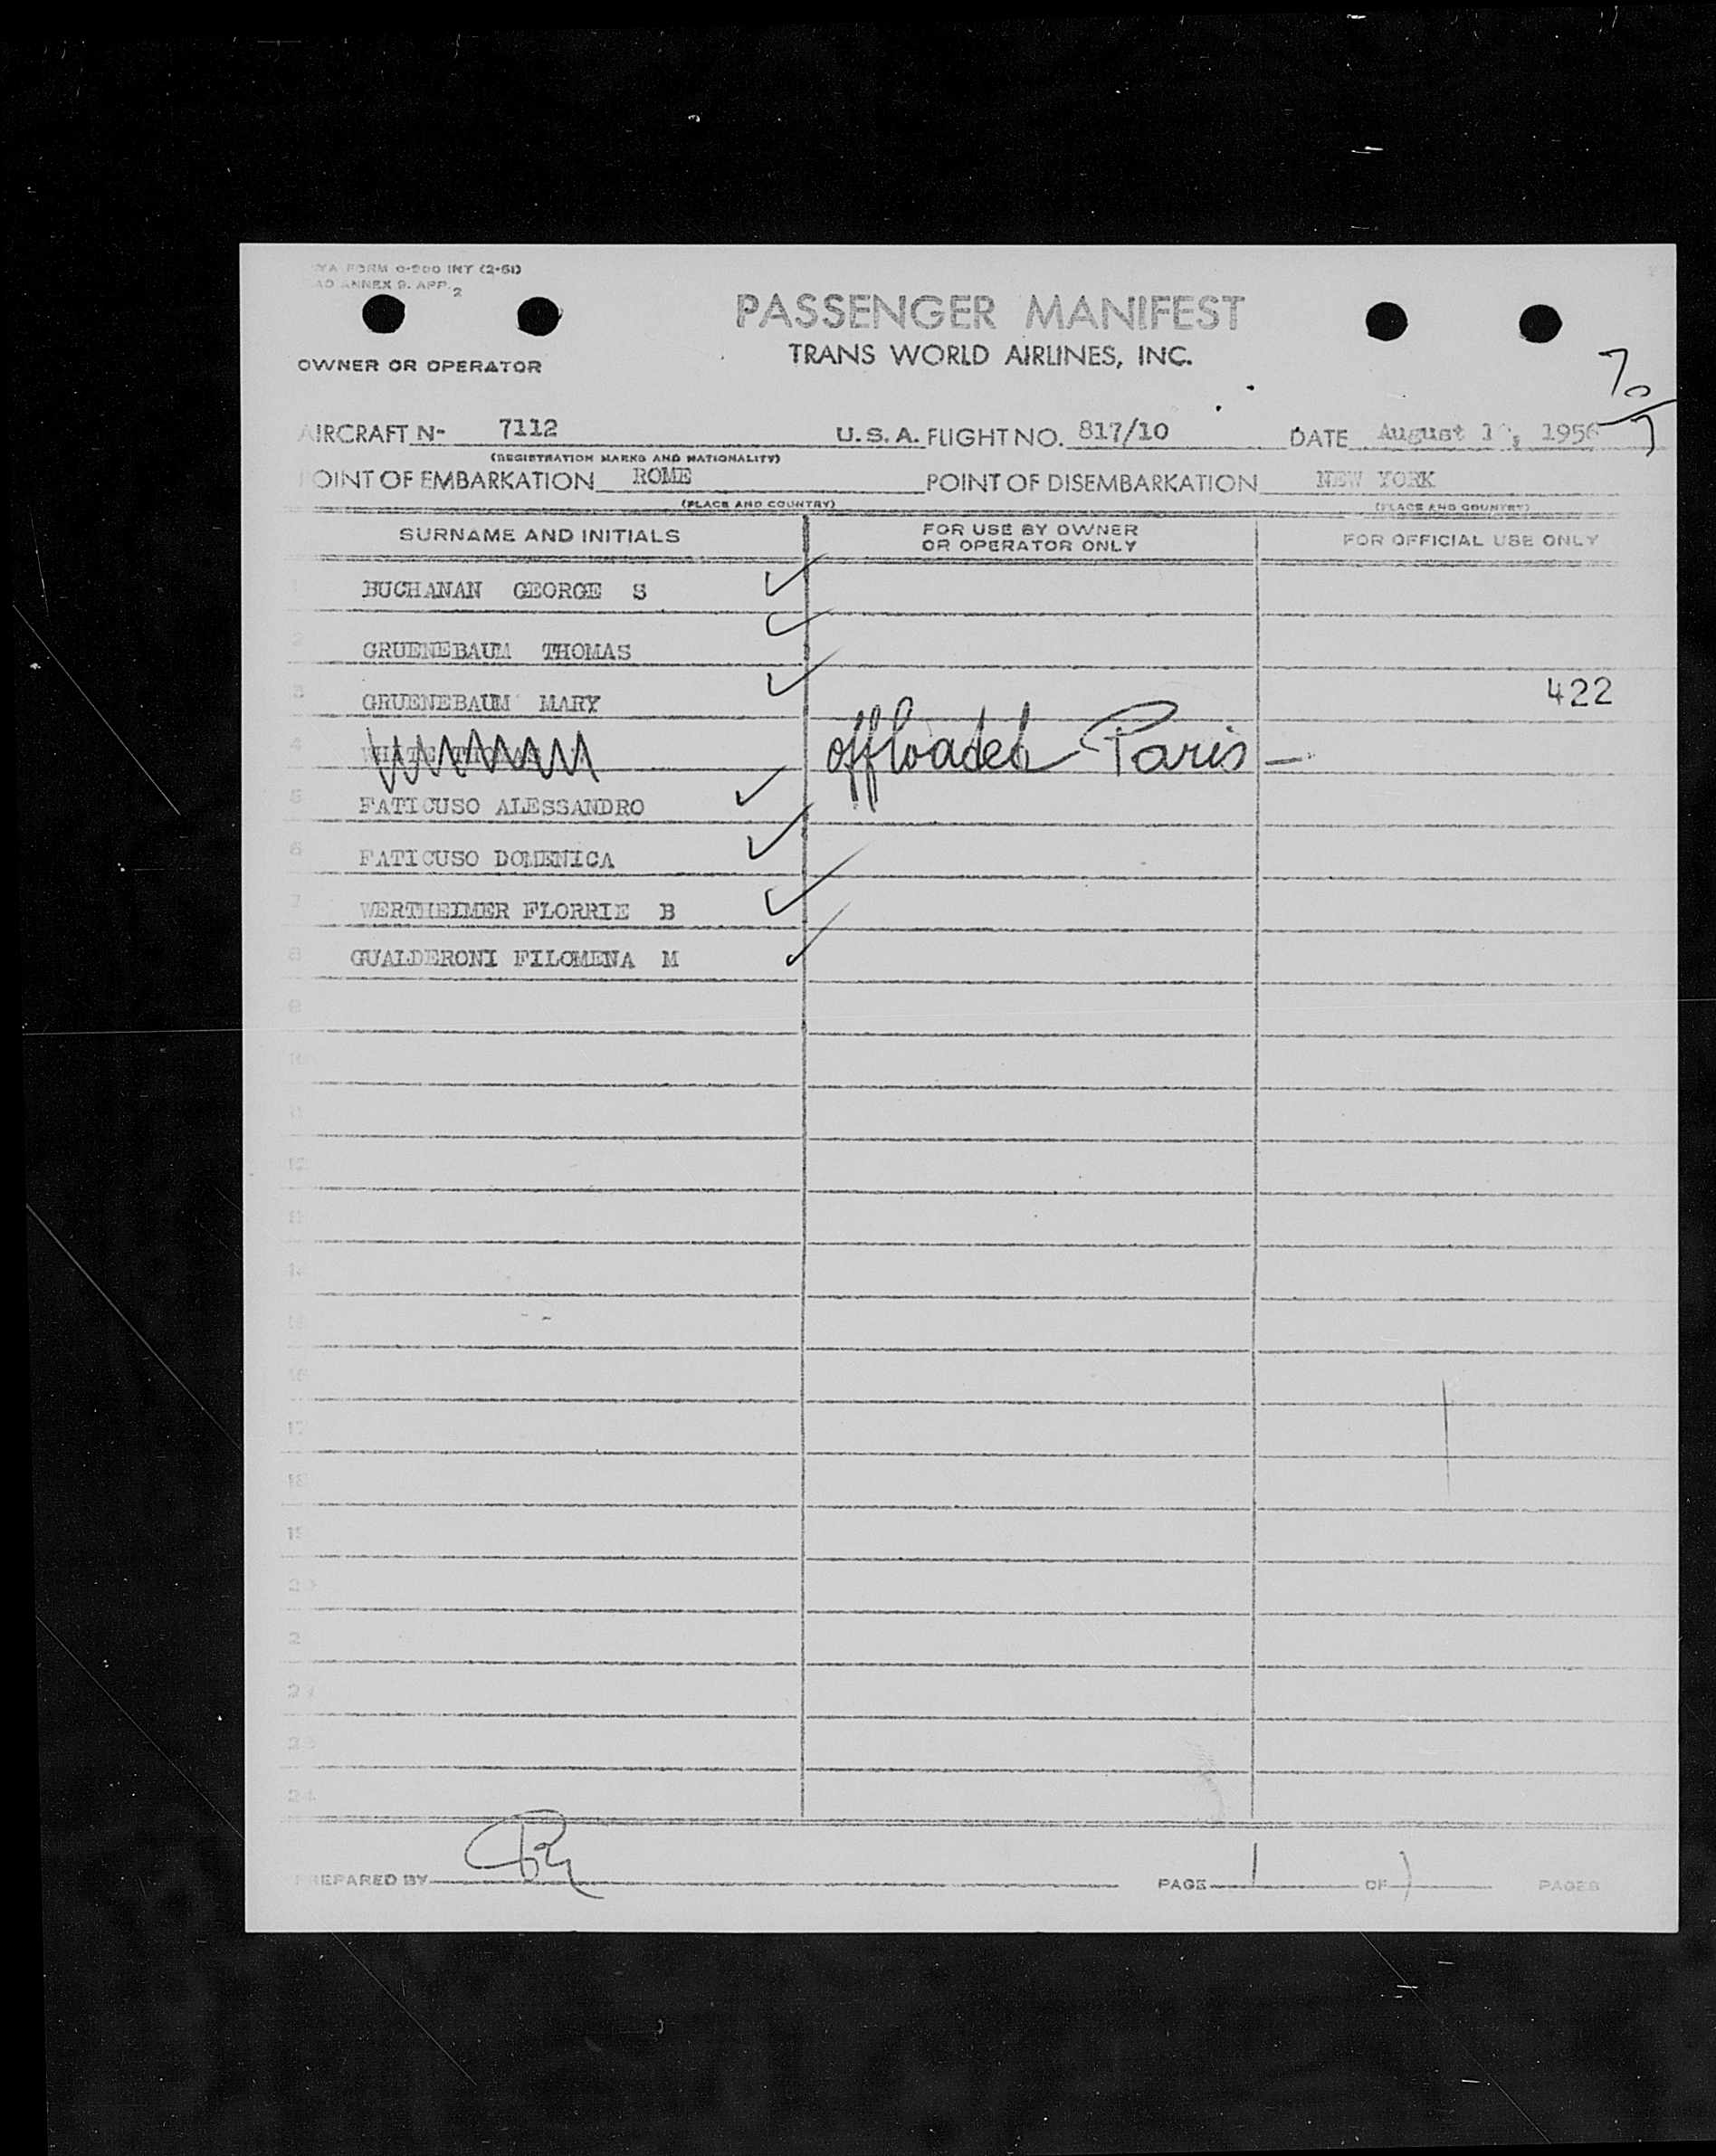 FORM 0-200 INT (2-51)
ANNEX 9. APP. 2
PASSENGER MANIFEST
TRANS WORLD AIRLINES, INC.
OWNER OR OPERATOR
70
7
AIRCRAFT N- 7112 U.S.A. FLIGHT NO. 817/10 DATE August 1, 1956
(REGISTRATION MARKS AND NATIONALITY)
POINT OF EMBARKATION ROME POINT OF DISEMBARKATION NEW YORK
(PLACE AND COUNTRY) (PLACE AND COUNTRY)
SURNAME AND INITIALS FOR USE BY OWNER OR OPERATOR ONLY FOR OFFICIAL USE ONLY
BUCHANAN GEORGE S
2 GRUENEBAUM THOMAS
3 GRUENEBAUM MARY 422
4 offloaded Paris -
5 FATICUSO ALESSANDRO
6 FATICUSO DOMENICA
7 WERTHEIMER FLORRIE B
8 GUALDERONI FILOMENA M
9
10
11
12
13
14
16
17
18
19
20
2
22
23
24
PREPARED BY PAGE 1 OF 1 PAGES